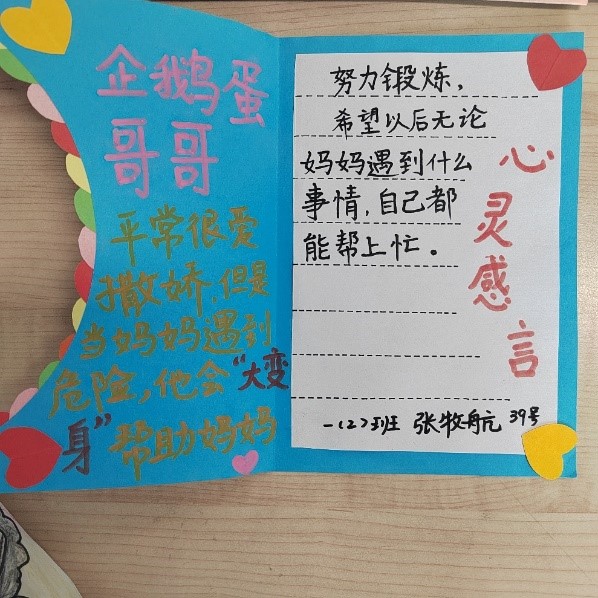 企鹅蛋
哥哥
平常很爱
撒娇,但是
当妈妈遇到
危险,他会“大变
身”帮助妈妈
努力锻炼,
希望以后无论
妈妈遇到什么
事情,自己都
能帮上忙。
心灵感言
一(2)班 张牧航 39号